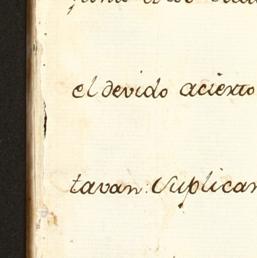 el devido acierto
tavan: Suplican